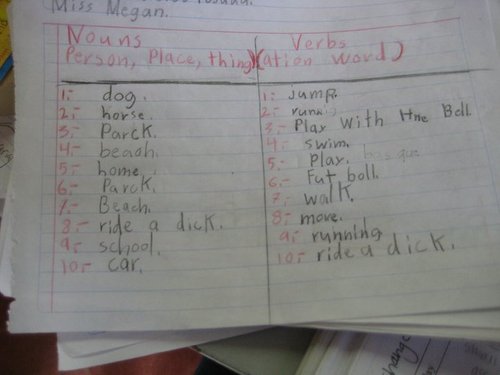 Miss Megan.
Nouns
Person, Place, thing
1.- dog.
2.- horse.
3.- Parck.
4.- beach.
5.- home
6.- Parck.
7.- Beach.
8.- ride a dick.
9.- school.
10.- car.
Verbs
(ation word)
1.- Jump.
2.- runnig
3.- Play with Hhe Boll.
4.- swim.
5.- Play.
6.- Fut boll.
7.- walk.
8.- move.
9.- running
10.- ride a dick.
change